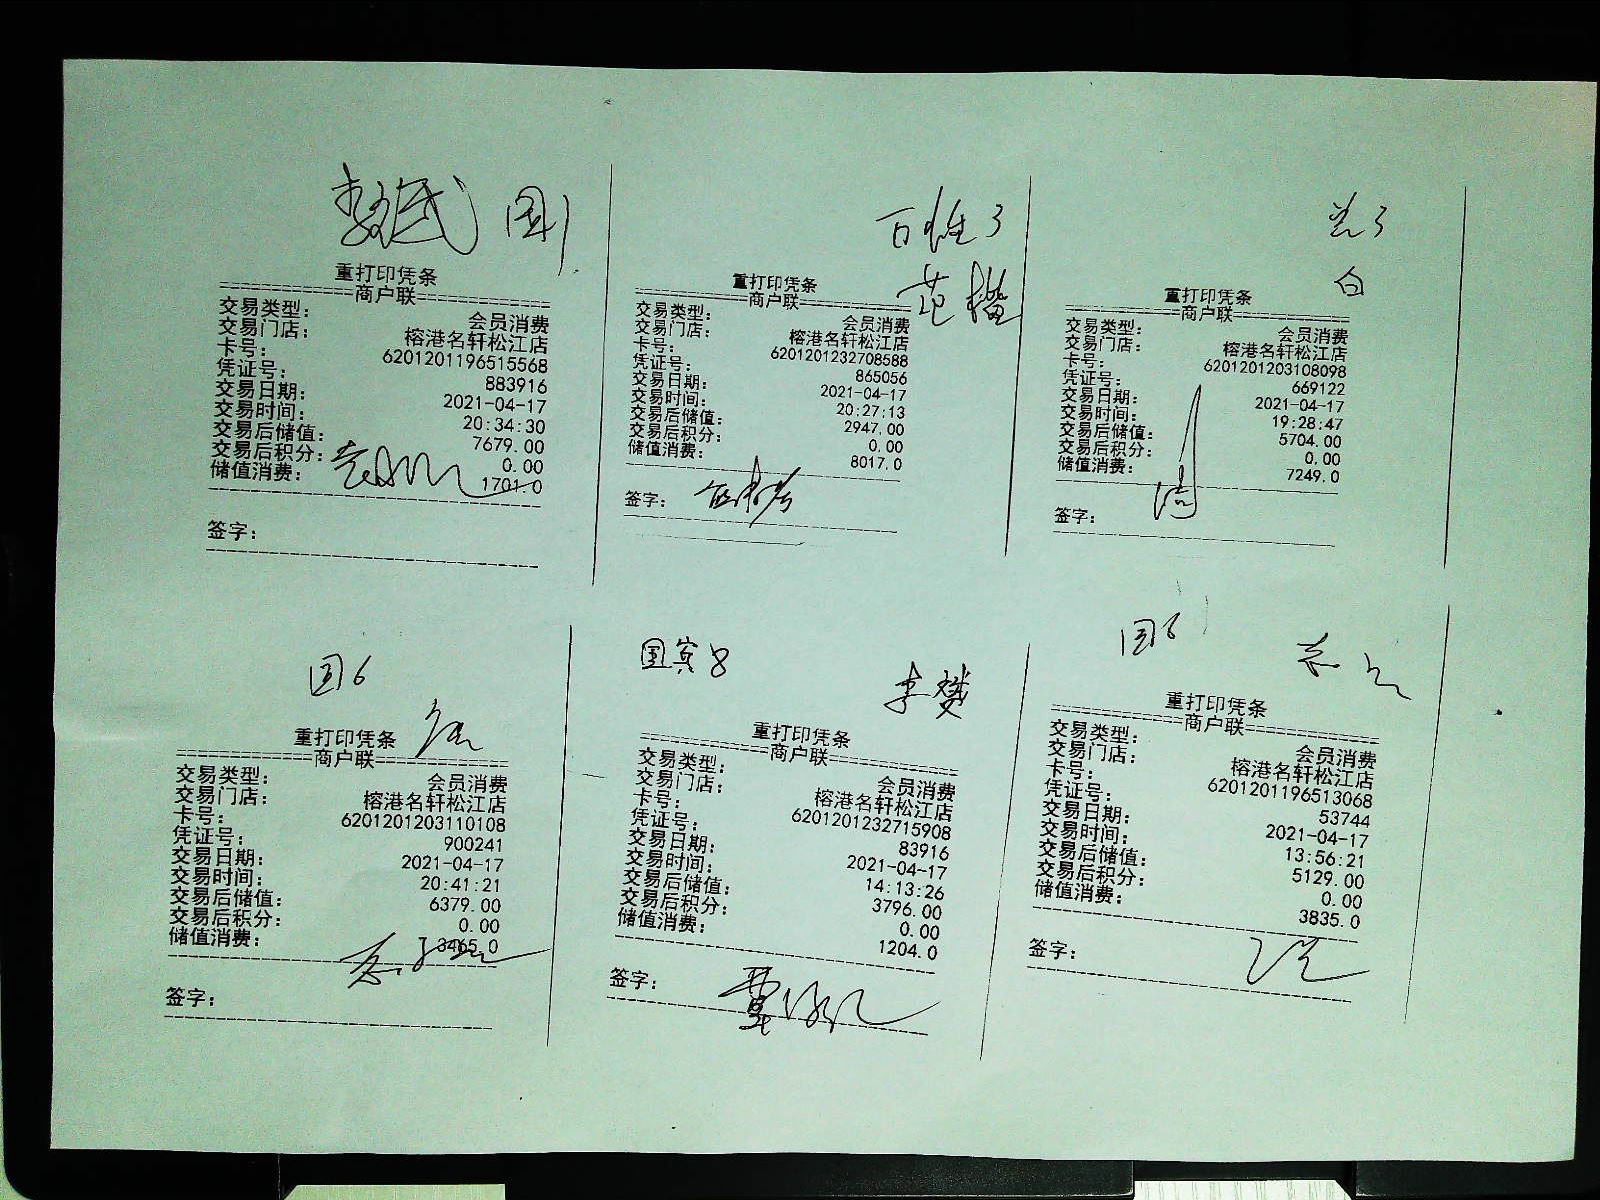 国1
重打印凭条
商户联
交易类型: 会员消费
交易门店: 榕港名轩松江店
卡号: 6201201196515568
凭证号: 883916
交易日期: 2021-04-17
交易时间: 20:34:30
交易后储值: 7679.00
交易后积分: 0.00
储值消费: 1701.0
签字:
百姓3
范楷
重打印凭条
商户联
交易类型: 会员消费
交易门店: 榕港名轩松江店
卡号: 6201201232708588
凭证号: 865056
交易日期: 2021-04-17
交易时间: 20:27:13
交易后储值: 2947.00
交易后积分: 0.00
储值消费: 8017.0
签字:
兰3
白
重打印凭条
商户联
交易类型: 会员消费
交易门店: 榕港名轩松江店
卡号: 6201201203108098
凭证号: 669122
交易日期: 2021-04-17
交易时间: 19:28:47
交易后储值: 5704.00
交易后积分: 0.00
储值消费: 7249.0
签字:
国6
重打印凭条
商户联
交易类型: 会员消费
交易门店: 榕港名轩松江店
卡号: 6201201203110108
凭证号: 900241
交易日期: 2021-04-17
交易时间: 20:41:21
交易后储值: 6379.00
交易后积分: 0.00
储值消费: 3465.0
签字:
国宾8
李燮
重打印凭条
商户联
交易类型: 会员消费
交易门店: 榕港名轩松江店
卡号: 6201201232715908
凭证号: 83916
交易日期: 2021-04-17
交易时间: 14:13:26
交易后储值: 3796.00
交易后积分: 0.00
储值消费: 1204.0
签字:
国6
重打印凭条
商户联
交易类型: 会员消费
交易门店: 榕港名轩松江店
卡号: 6201201196513068
凭证号: 53744
交易日期: 2021-04-17
交易时间: 13:56:21
交易后储值: 5129.00
交易后积分: 0.00
储值消费: 3835.0
签字: